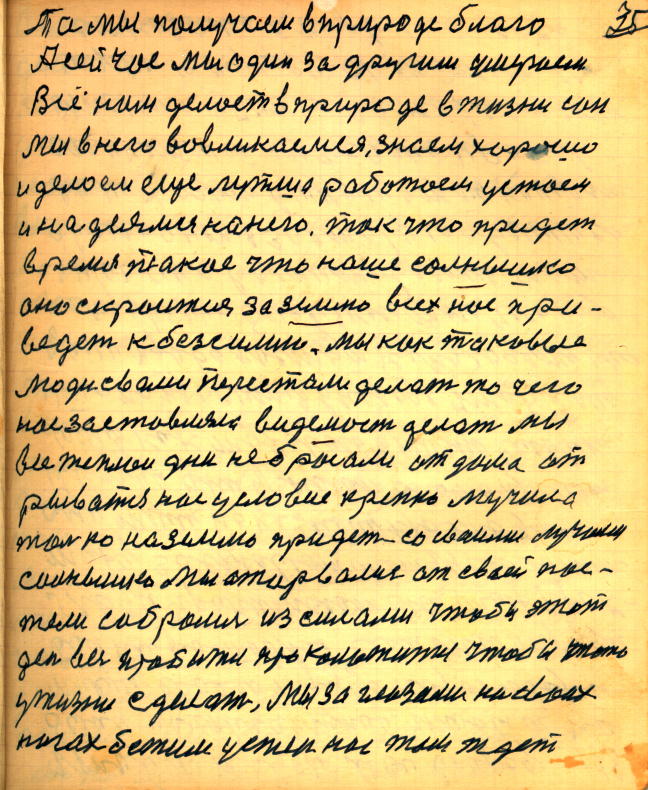 Та мы получаем в природе благо 75
А сейчас мы один за другим умераем
Всё нам делает в природе в жизни сам
мы в него вовликаемся, знаем хорошо
и делаем еще лутша работаем устаем
и надеямся на него. так что придет
время такое что наше солнышико
оно скроится за землю всех нас при-
ведет к безсилию. мы как таковые
люди с вами перестали делат то чего
нас заставляла видемост делат мы
все теплои дни не бросали от дома от
рыватя нас условие крепко мучила
толко на землю придет со своими лучами
солнышико мы оторвалис от своей пос-
тели собралис из силами чтобы этот
ден вес пробити проколотити чтобы
у жизни сделат, мы за глазами на своих
ногах бежим успех нас там ждет